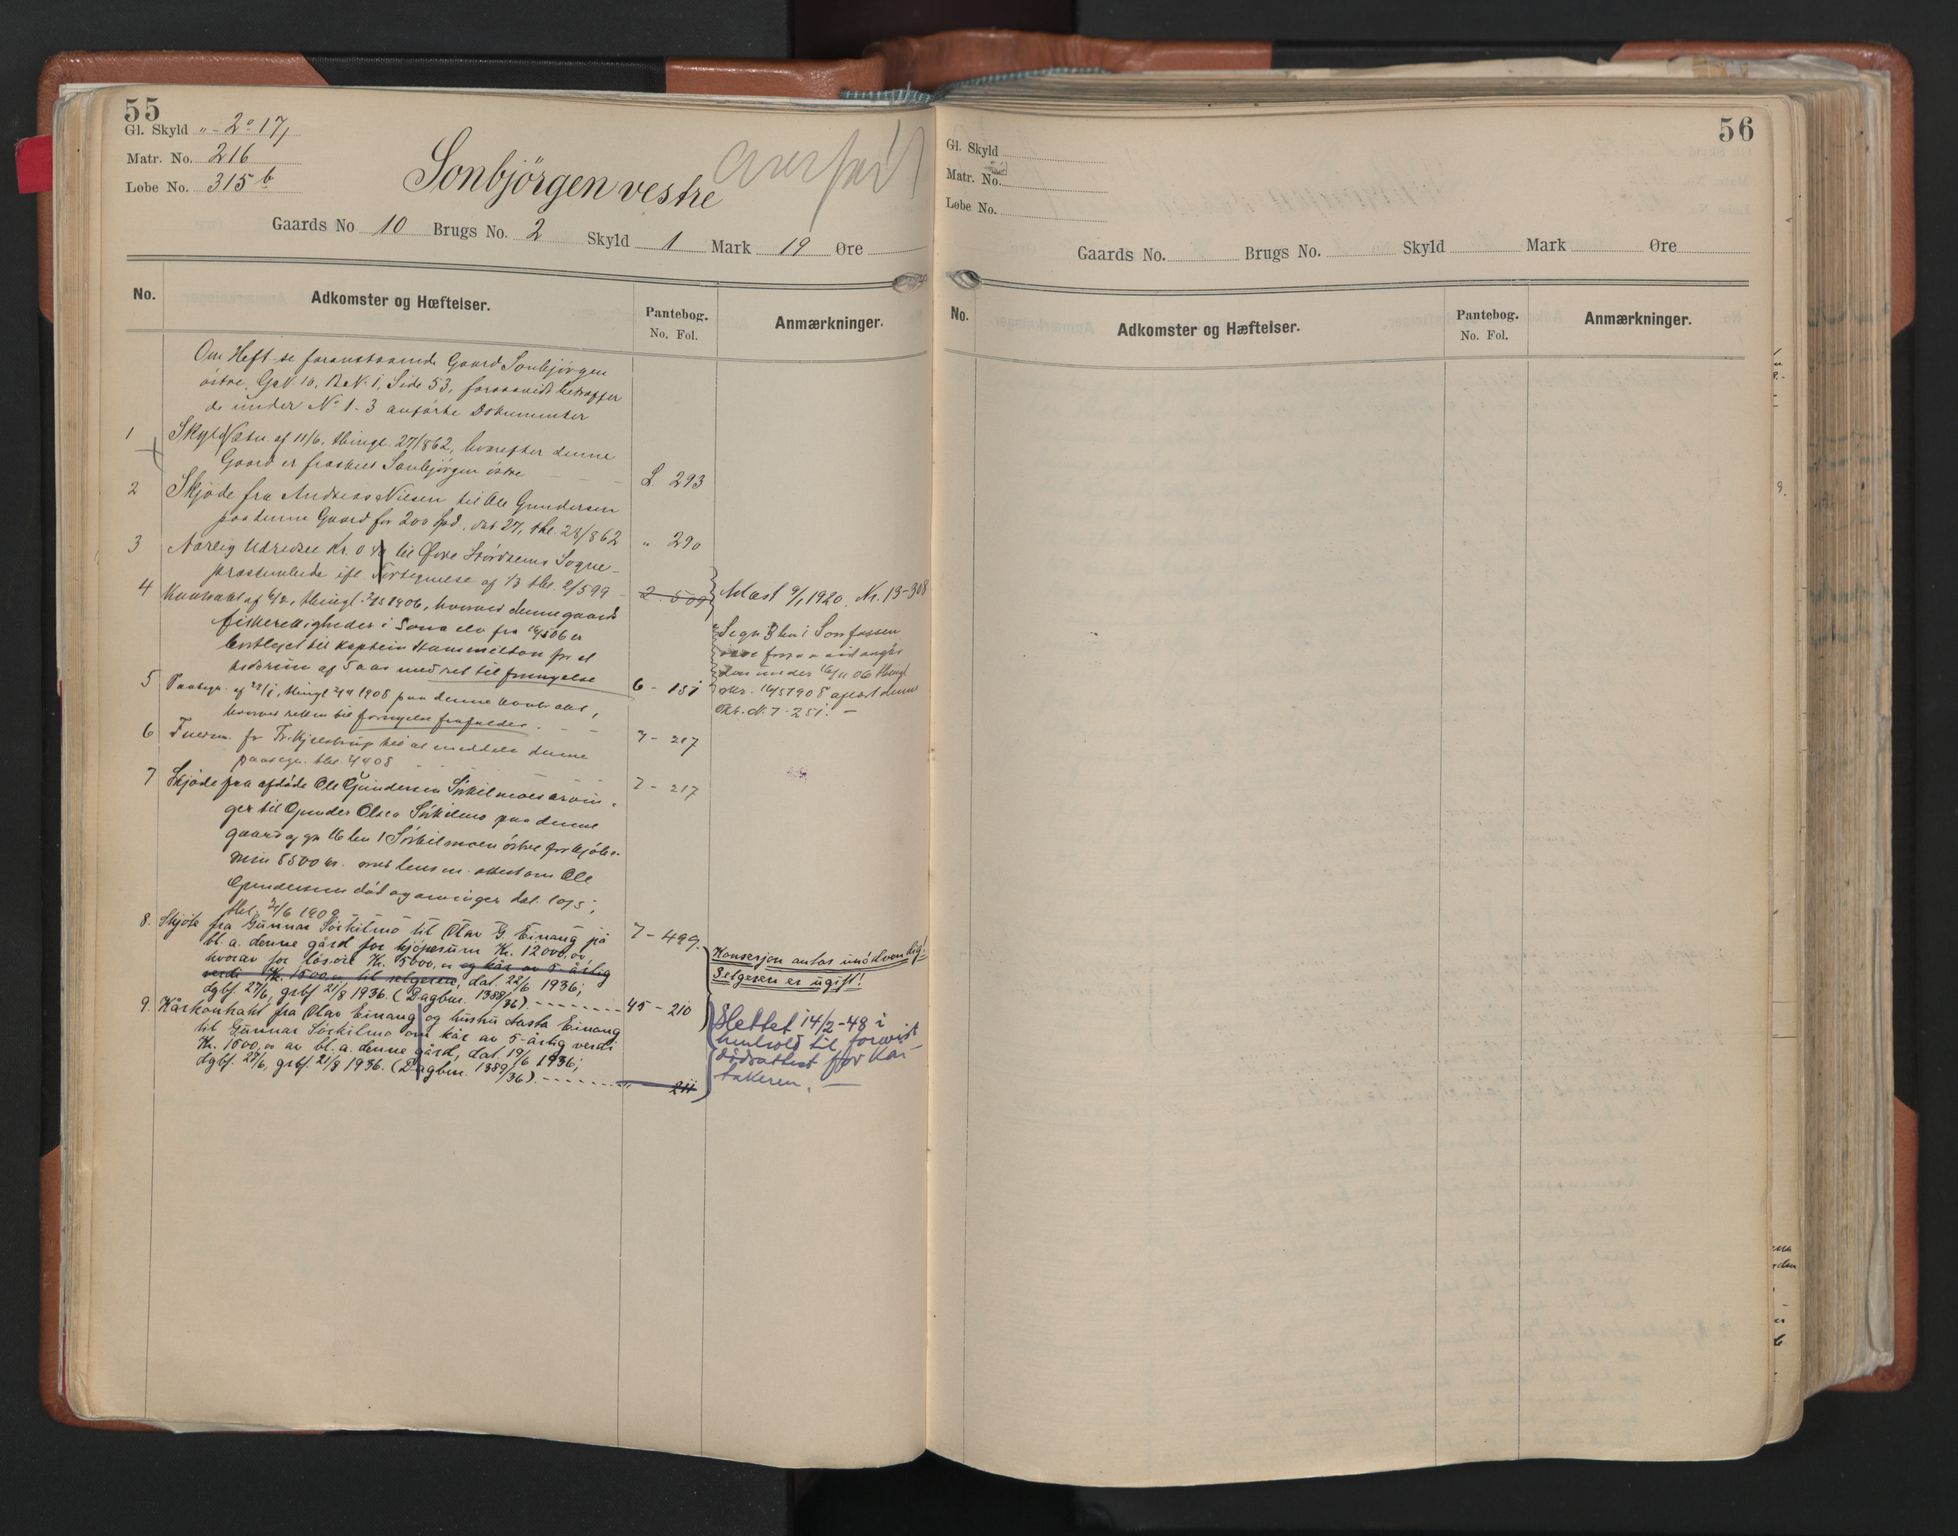 55
Gl. Skyld „ - 2 ° 17
Matr. No. 216
Løbe No. 315 b
Sonbjørgen vestre
Overført
Gaards No 10 Brugs No. 2 Skyld 1 Mark 19 Øre
No. Adkomster og Hæftelser. Pantebog. No. Fol. Anmærkninger.
Om Heft. se foranstaaende Gaard Sonbjørgen
østre, G.N. 10, B.N. 1, Side 53, forsaavidt betræffer
de under No 1-3 anførte Dokumenter
1 Skyld af 11/6, thingl. 27/862, hvorefter denne
Gaard er fraskilt Sonbjørgen østre L. 293
2 Skjøde fra Andreas Nilsen til Ole Gundersen
paa denne Gaard for 200 Spd. dat 27, thl. 28/862 „ 290
3 Aarlig Udredsel Kr. 0 til Øvre Størdalens Sogne-
præstembede ifl. Fortegnelse af 1/3 thl. 2/599 2. 509 Avløst 9/1 1920. Nr. 13-308
4 Kontrakt af thingl. 1906, hvorved denne gaards
fiskerettigheder i Sona elv fra 16/506 er
bortleiet til kaptein Hammilton for et
tidsrum af 5 aar med ret til fornyelse 6 - 151
i Sonfossen
16/11 06 thingl
16/51908 denne
N. 7-251. —
5 Paategn. af 29/1, thingl 1908 paa denne kontrakt,
hvorved retten til fornyelse frafaldes. 7 - 217
6 Fuldm. for Fr. Kjelstrup til at meddele denne
paategn. thl. 08 7 - 217
7 Skjøde fra afdøde Ole Gundersen Sørkilmoes arvin-
ger til Gunder Olsen Sørkilmo paa denne
gaard og gn 16 bn 1 Sørkilmoen østre for kjøbe-
5500 kr. med lensm. attest om Ole
Gundersens død og arvinger dat.
thl. 1909 7 - 499.
8. Skjøte fra Gunnar Sørkilmo til Olav G Einang på
bl. a. denne gård for kjøpesum Kr. 12000,00
hvorav for løsøre Kr. 5000,00 og kår av 5-årlig
verdi Kr. 1500,00 til selgeren, dat. 22/6 1936;
dgbf. 27/6, grbf 21/8 1936. (Dagbnr. 1388/36). 45 - 210
Konsesjon antas unødvendig!
Selgeren er ugift!
9. Kårkontrakt fra Olav Einang og hustru Aasta Einang
til Gunnar Sørkilmo om kår av 5-årlig verdi
Kr. 1500,00 av bl. a. denne gård, dat. 19/6 1936;
dgbf. 27/6, grbf. 21/8 1936. (Dagbnr. 1389/36). „ 211
Slettet 14/2-48 i
henhold til forevist
dødsattest for kår-
takeren. —
56
Gl. Skyld
Matr. No.
Løbe No.
Gaards No. Brugs No. Skyld Mark Øre
No. Adkomster og Hæftelser. Pantebog. No. Fol. Anmærkninger.